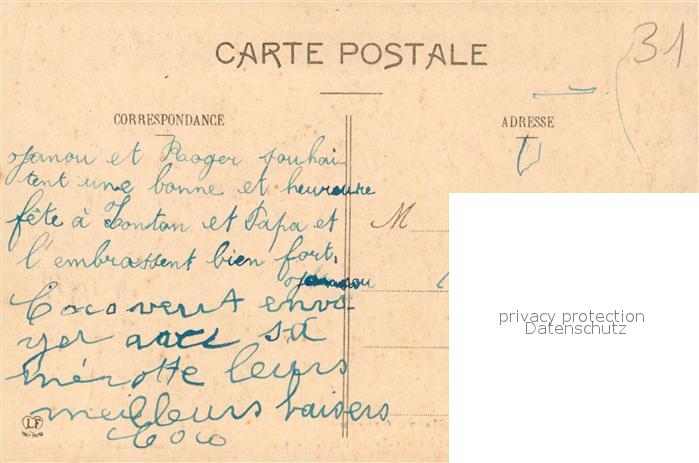 31
CARTE POSTALE
CORRESPONDANCE
ADRESSE
Janou et Rooger souhai-
tent une bonne et heureure
fête à Tontan et Papa et
l'embrassent bien fort.
Janou
Coco veut envo-
yer avec sa
mérotte leurs
meilleurs baisers
Coco
M
LF
privacy protection
Datenschutz